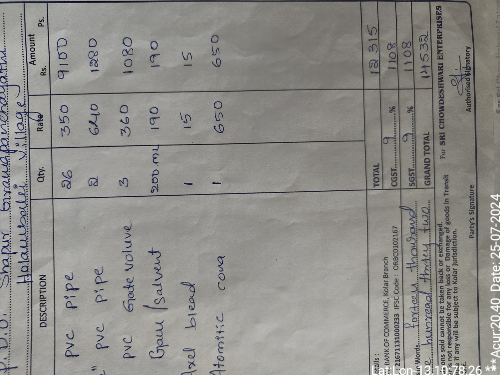 Grama panchayathi
Holamballi Village
DESCRIPTION Qty. Rate Amount
Rs. Ps.
PVC PIPE 26 350 9100
PVC PIPE 2 640 1280
PVC Gate valuve 3 360 1080
Gaum / Salvent 200 ML 190 190
blead 1 15 15
1 650 650
TOTAL 12315
CGST 9 % 1108
SGST 9 % 1108
GRAND TOTAL 14532
BANK OF COMMERCE, Kolar Branch
IFSC Code : ORBC0102167
Words
thousand
two
sold cannot be taken back or exchanged.
not responsible for any loss or Damage of goods in Transit
if any will be subject to Kolar Jurisdiction.
For SRI CHOWDESHWARI ENTERPRISES
Party's Signature
Authorised Signatory
Lat/Lon 13.10,78.26 ** Acur:20.40, Date: 25-07-2024